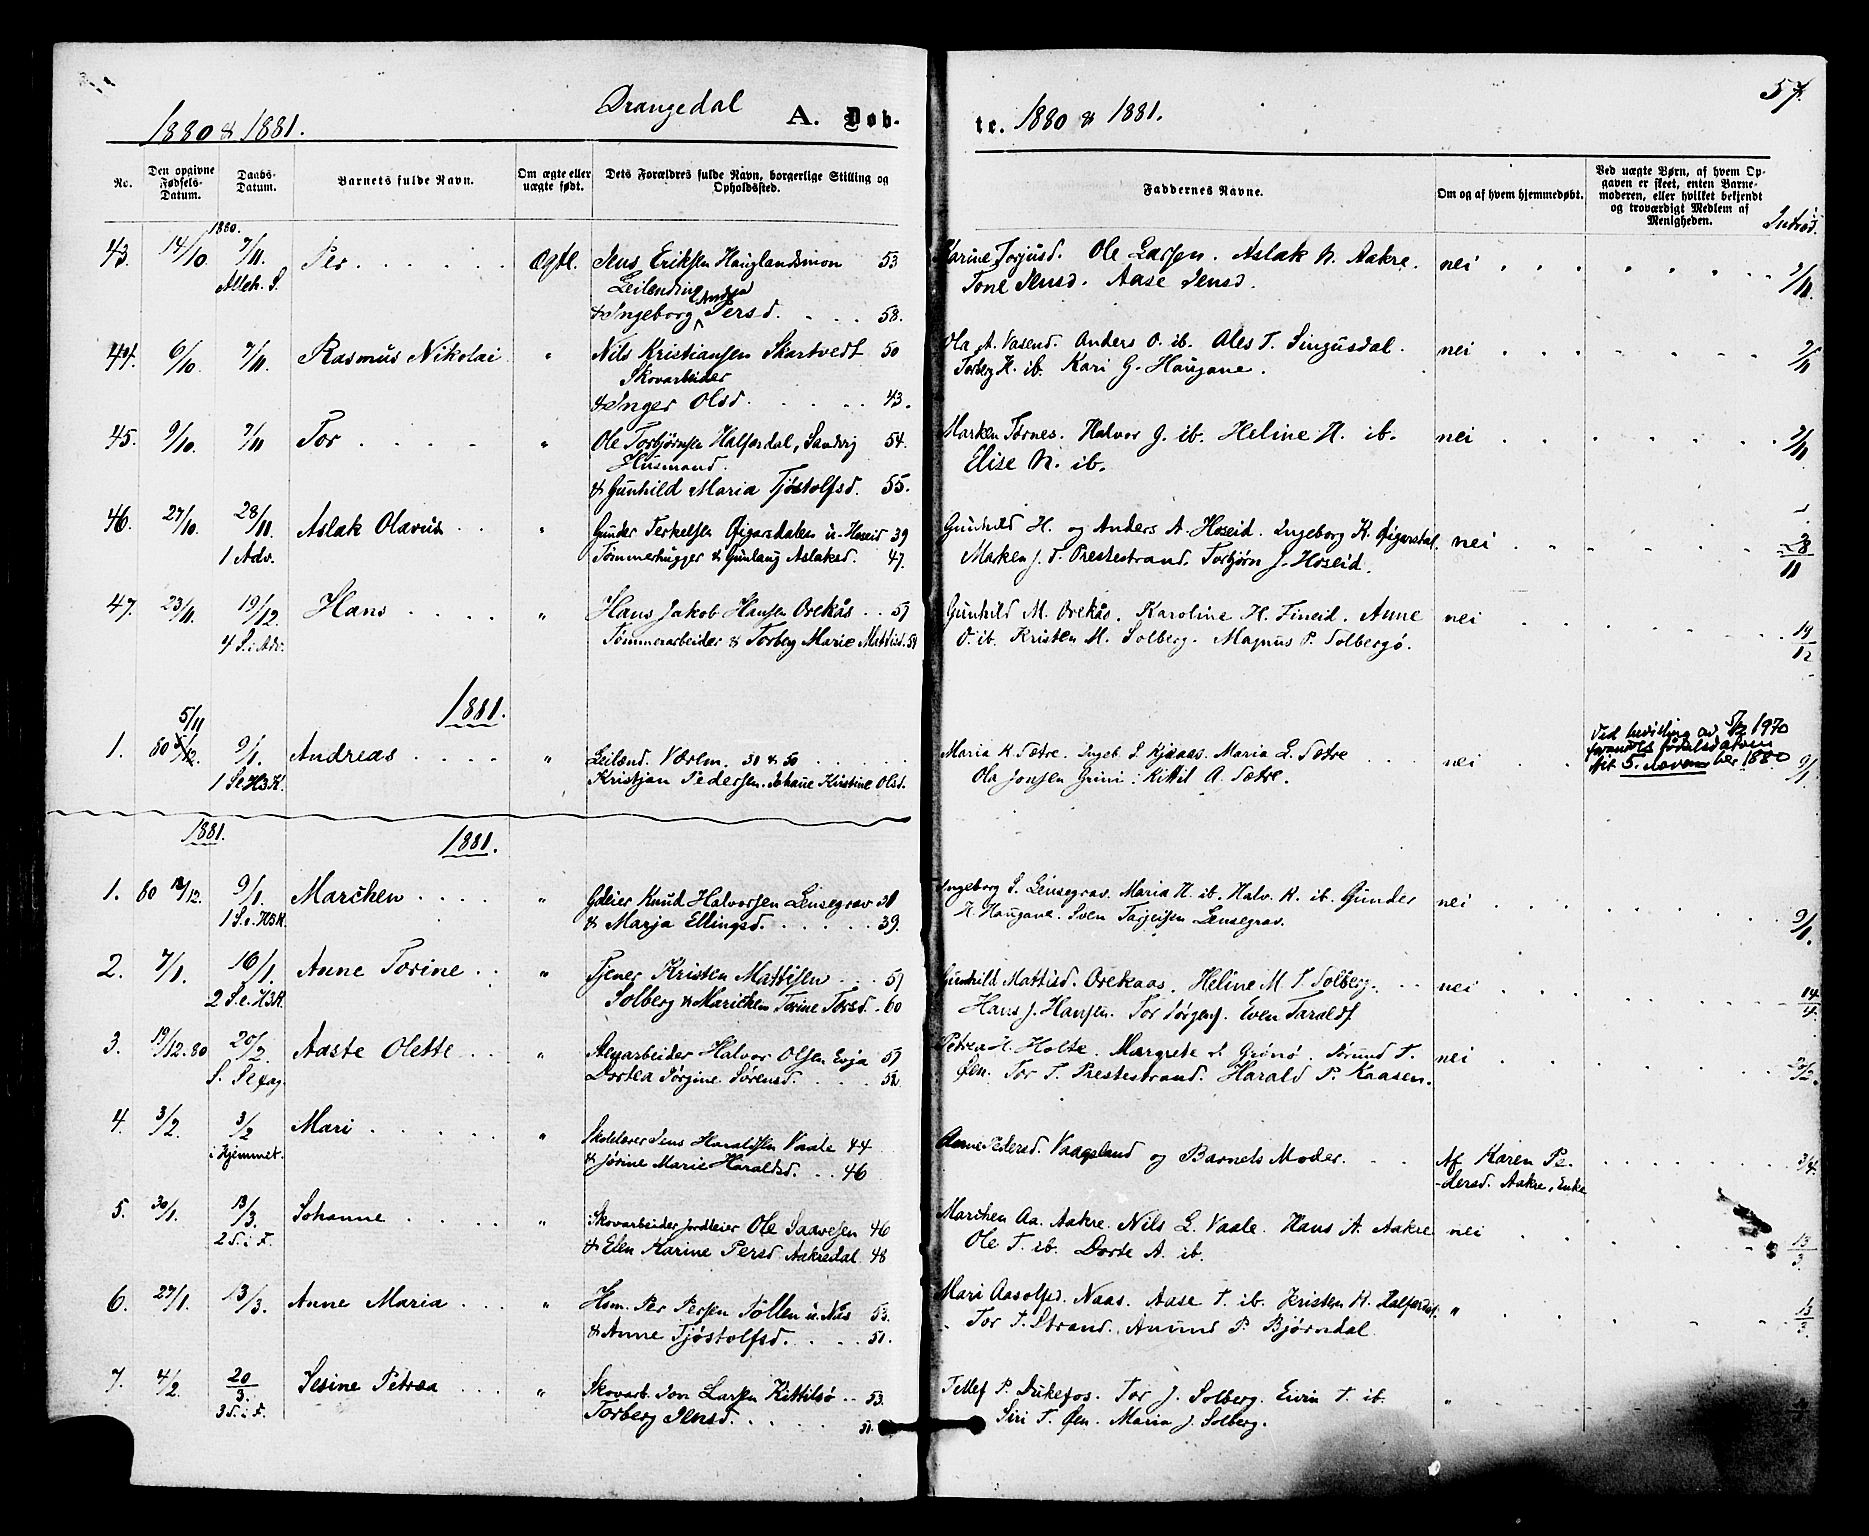 57.
Drangedal
1880 & 1881. A. Døb-
te. 1880 & 1881.
No.
Den opgivne Fødsels-Datum.
Daabs-Datum.
Barnets fulde Navn.
Om ægte eller uægte født.
Dets Forældres fulde Navn, borgerlige Stilling og Opholdssted.
Faddernes Navne.
Om og af hvem hjemmedøbt.
Ved uægte Børn, af hvem Opgaven er skeet, enten Barnemoderen, eller hvilket bekjendt og troværdigt Medlem af Menigheden.
Introd.
1880.
43. 14/10. 7/11. Per Ægte. Jens Eriksen Hauglandsmoen 53
Alleh. S. Leilænding
& Ingeborg Andrea Persd. 58.
Karine Torjusd. Ole Larsen. Aslak N. Aakre. nei 7/11
Tone Jensd. Aase Jensd.
44. 6/10. 7/11. Rasmus Nikolai " Nils Kristiansen Skartvedt 50
Skovarbeider
& Inger Olsd. 43.
Ola A. Vasend. Anders O. ib. Ales T. Singusdal. nei 7/11
Torberg H. ib. Kari G. Haugane.
45. 9/10. 7/11 Tor " Ole Torbjørnsen Halfardal, Sandvig 54.
Husmand.
& Gunhild Maria Tjøstolfsd. 55.
Marken Tornes. Halvor J. ib. Heline H. ib. nei 7/11
Elise N. ib.
46. 27/10. 28/11. Aslak Olavus " Gunder Terkelsen Øigarsdalen u. Høseid 39
1 Adv. Tømmerhugger & Gunlaug Aslaksd. 47.
Gunhild H. og Anders A. Høseid. Ingeborg K. Øigarsdal. nei 28/11
Marken J. T. Prestestrand. Torbjørn J. Høseid.
47. 23/11. 19/12. Hans " Hans Jakob Hansen Orekås 57
4 S. i Adv. Tømmerarbeider & Torberg Marie Mathisd.
Gunhild M. Orekås. Karoline H. Fineid. Anne nei 19/12
O. ib. Kristen M. Solberg. Magnus P. Solbergø.
1881.
5/11
1. 80 5/12. 9/1. Andreas " Leilænd. Værlm. 51 & 50
1 S. e. H3K. Kristjan Pedersen. Johane Kirstine Olsd.
Maria K. Sætre. Ingeb. S. Kjøaas. Maria L. Sætre nei
Ola Jonsen Grini. Kittil A. Sætre.
Ved bevilling av 5/2 1970
forandres fødselsdatoen
til 5. november 1880 9/1
1881. 1881.
1. 80 12/12. 9/1. Marichen " Gdeier Knud Halvorsen Lensegrav 31
1 S. e. H3K. & Marja Ellingsd. 39.
Ingeborg S. Lensegrav. Maria H. ib. Halv. K. ib. Gunder nei 9/1.
H. Haugane. Sven Tarjeisen Lensegrav.
2. 7/1. 16/1. Anne Torine " Tjener Kristen Mathisen 57
2 S. e. H3K. Solberg & Marichen Torine Torsd. 60
Gunhild Mathisd. Orekaas. Heline M. T. Solberg. nei
Hans J. Hansen. Tor Jørgens. Even Taralds.
3. 19/12.80 20/2. Aaste Olette " Slegarbeider Halvor Olsen Evja 57
S. Sexag. Dortea Jørgine Sørensd. 52
Petrea H. Holte. Margrete S. Grønø. Jørund T. nei 20/2.
Øen. Tor T. Prestestrand. Harald P. Kaasen.
4. 3/2. 3/2 Mari " Skolelærer Jens Haraldsen Vaale 44
i Hjemmet. & Jørine Marie Haraldsd. 46
Anne Pedersd. Vaagsland og Barnets Moder. Af Karen Pe-
dersd. Aakre, Enke 3/4.
5. 30/1. 13/3. Johanne " Skovarbeider Jordleier Ole Saavesen 46
2 S. i F. & Elen Karine Persd. Aakredal 48
Marichen Aa. Aakre. Nils L. Vaale. Hans A. Aakre nei 13/3.
Ole T. ib. Dorte A. ib.
6. 27/1. 13/3. Anne Maria " Hsm. Per Persen Tollen u. Nås 53.
& Anne Tjøstolfsd. 51.
Mari Aasolfsd. Naas. Aase T. ib. Kristen H. Halfardal. " 13/3.
Tor T. Strand. Anund P. Bjørndal.
7. 4/2. 20/3. Sesine Petræa " Skovarb. Jon Larsen Kittilsø 53
3 S. i F. Torberg Jensd. 51.
Tellef P. Dukefos. Tor J. Solberg. Eivin T. ib. "
Siri T. Øen. Maria J. Solberg.